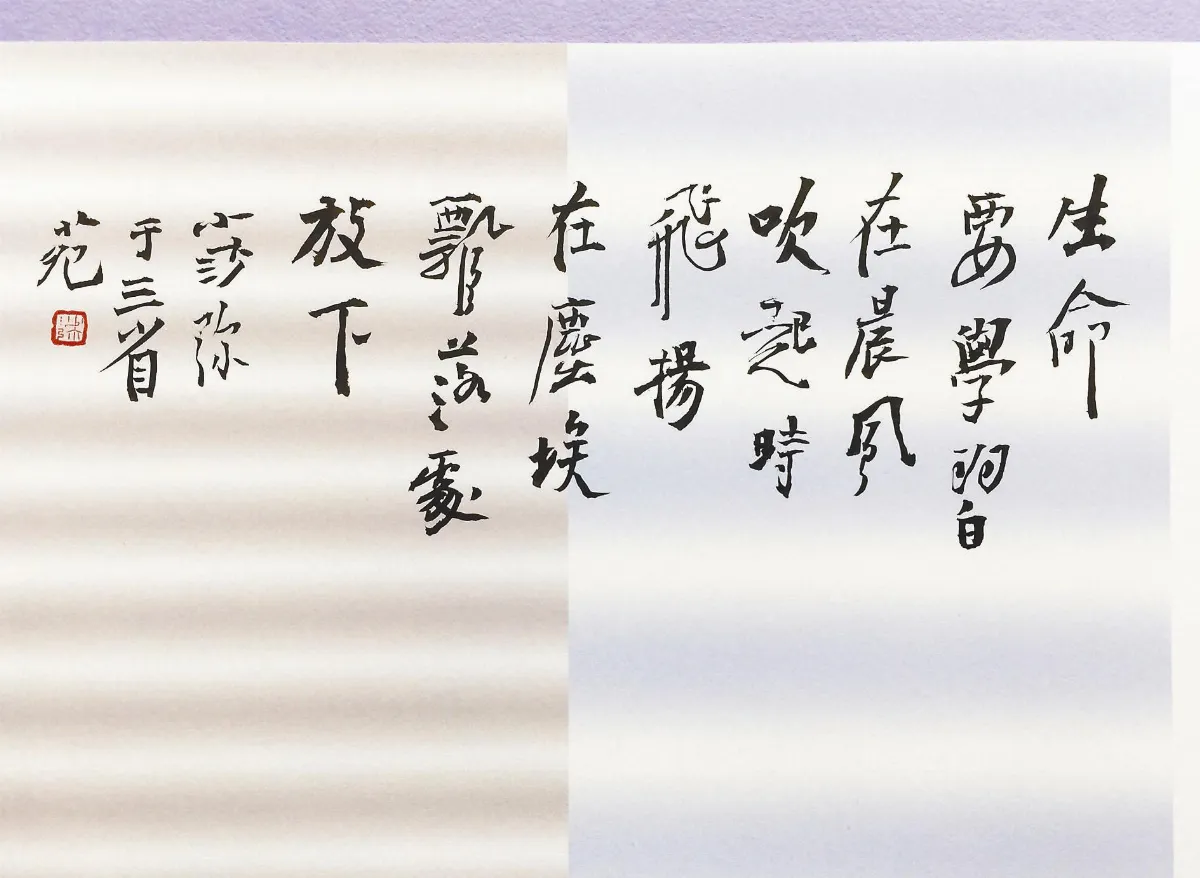 生命
要學習
在晨風
吹起時
飛揚
在塵埃
飄落處
放下
莎弥
于三省
苑